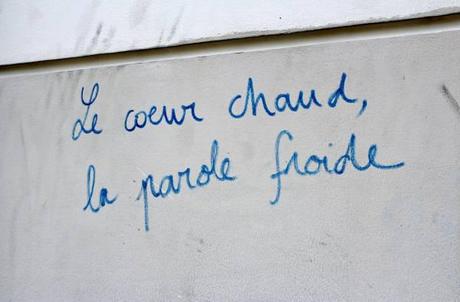 Le coeur chaud,
la parole froide